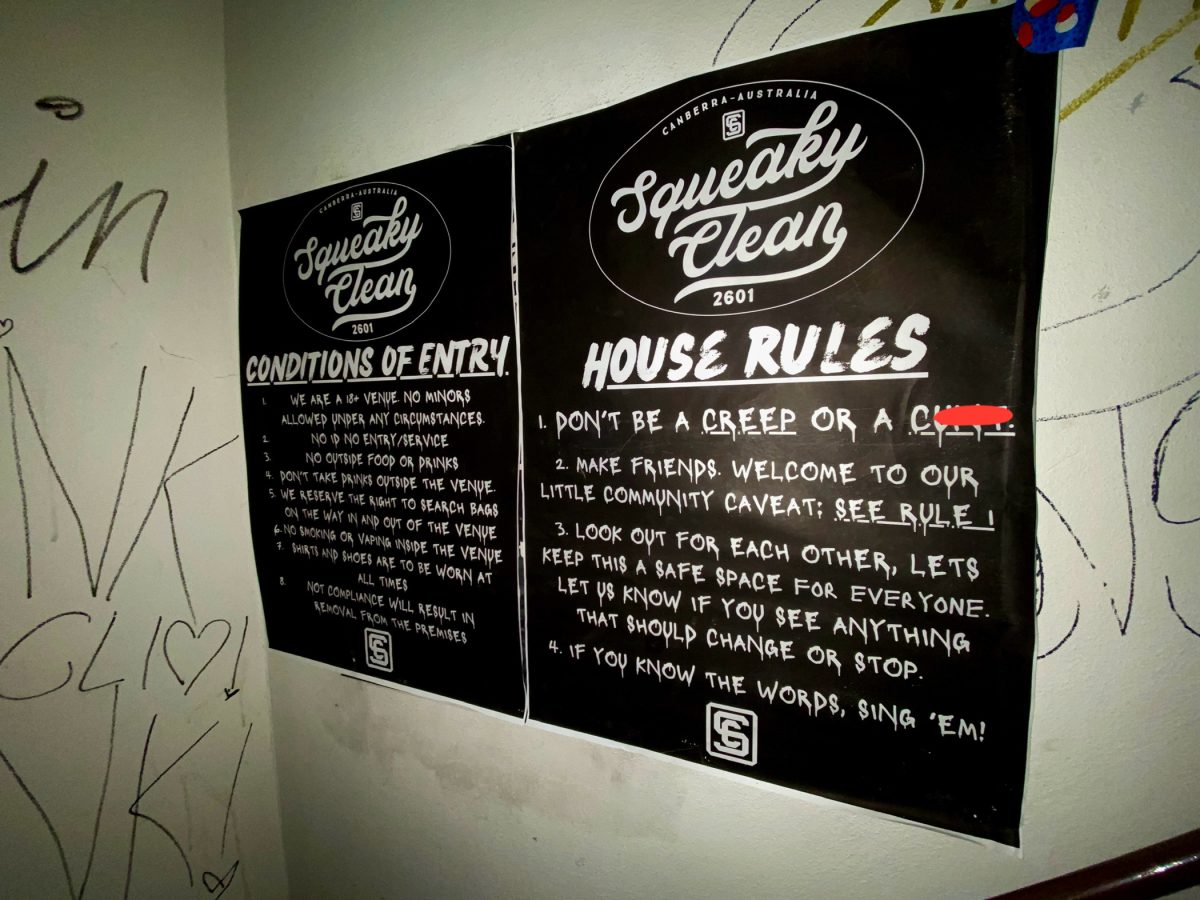 CANBERRA-AUSTRALIA
Squeaky
Clean
2601
CONDITIONS OF ENTRY
1. WE ARE A 18+ VENUE. NO MINORS
ALLOWED UNDER ANY CIRCUMSTANCES.
2. NO ID NO ENTRY/SERVICE
3. NO OUTSIDE FOOD OR DRINKS
4. DON'T TAKE DRINKS OUTSIDE THE VENUE.
5. WE RESERVE THE RIGHT TO SEARCH BAGS
ON THE WAY IN AND OUT OF THE VENUE
6. NO SMOKING OR VAPING INSIDE THE VENUE
7. SHIRTS AND SHOES ARE TO BE WORN AT
ALL TIMES
8. NOT COMPLIANCE WILL RESULT IN
REMOVAL FROM THE PREMISES
CANBERRA-AUSTRALIA
Squeaky
Clean
2601
HOUSE RULES
1. DON'T BE A CREEP OR A
2. MAKE FRIENDS. WELCOME TO OUR
LITTLE COMMUNITY CAVEAT; SEE RULE 1
3. LOOK OUT FOR EACH OTHER, LETS
KEEP THIS A SAFE SPACE FOR EVERYONE.
LET US KNOW IF YOU SEE ANYTHING
THAT SHOULD CHANGE OR STOP.
4. IF YOU KNOW THE WORDS, SING 'EM!